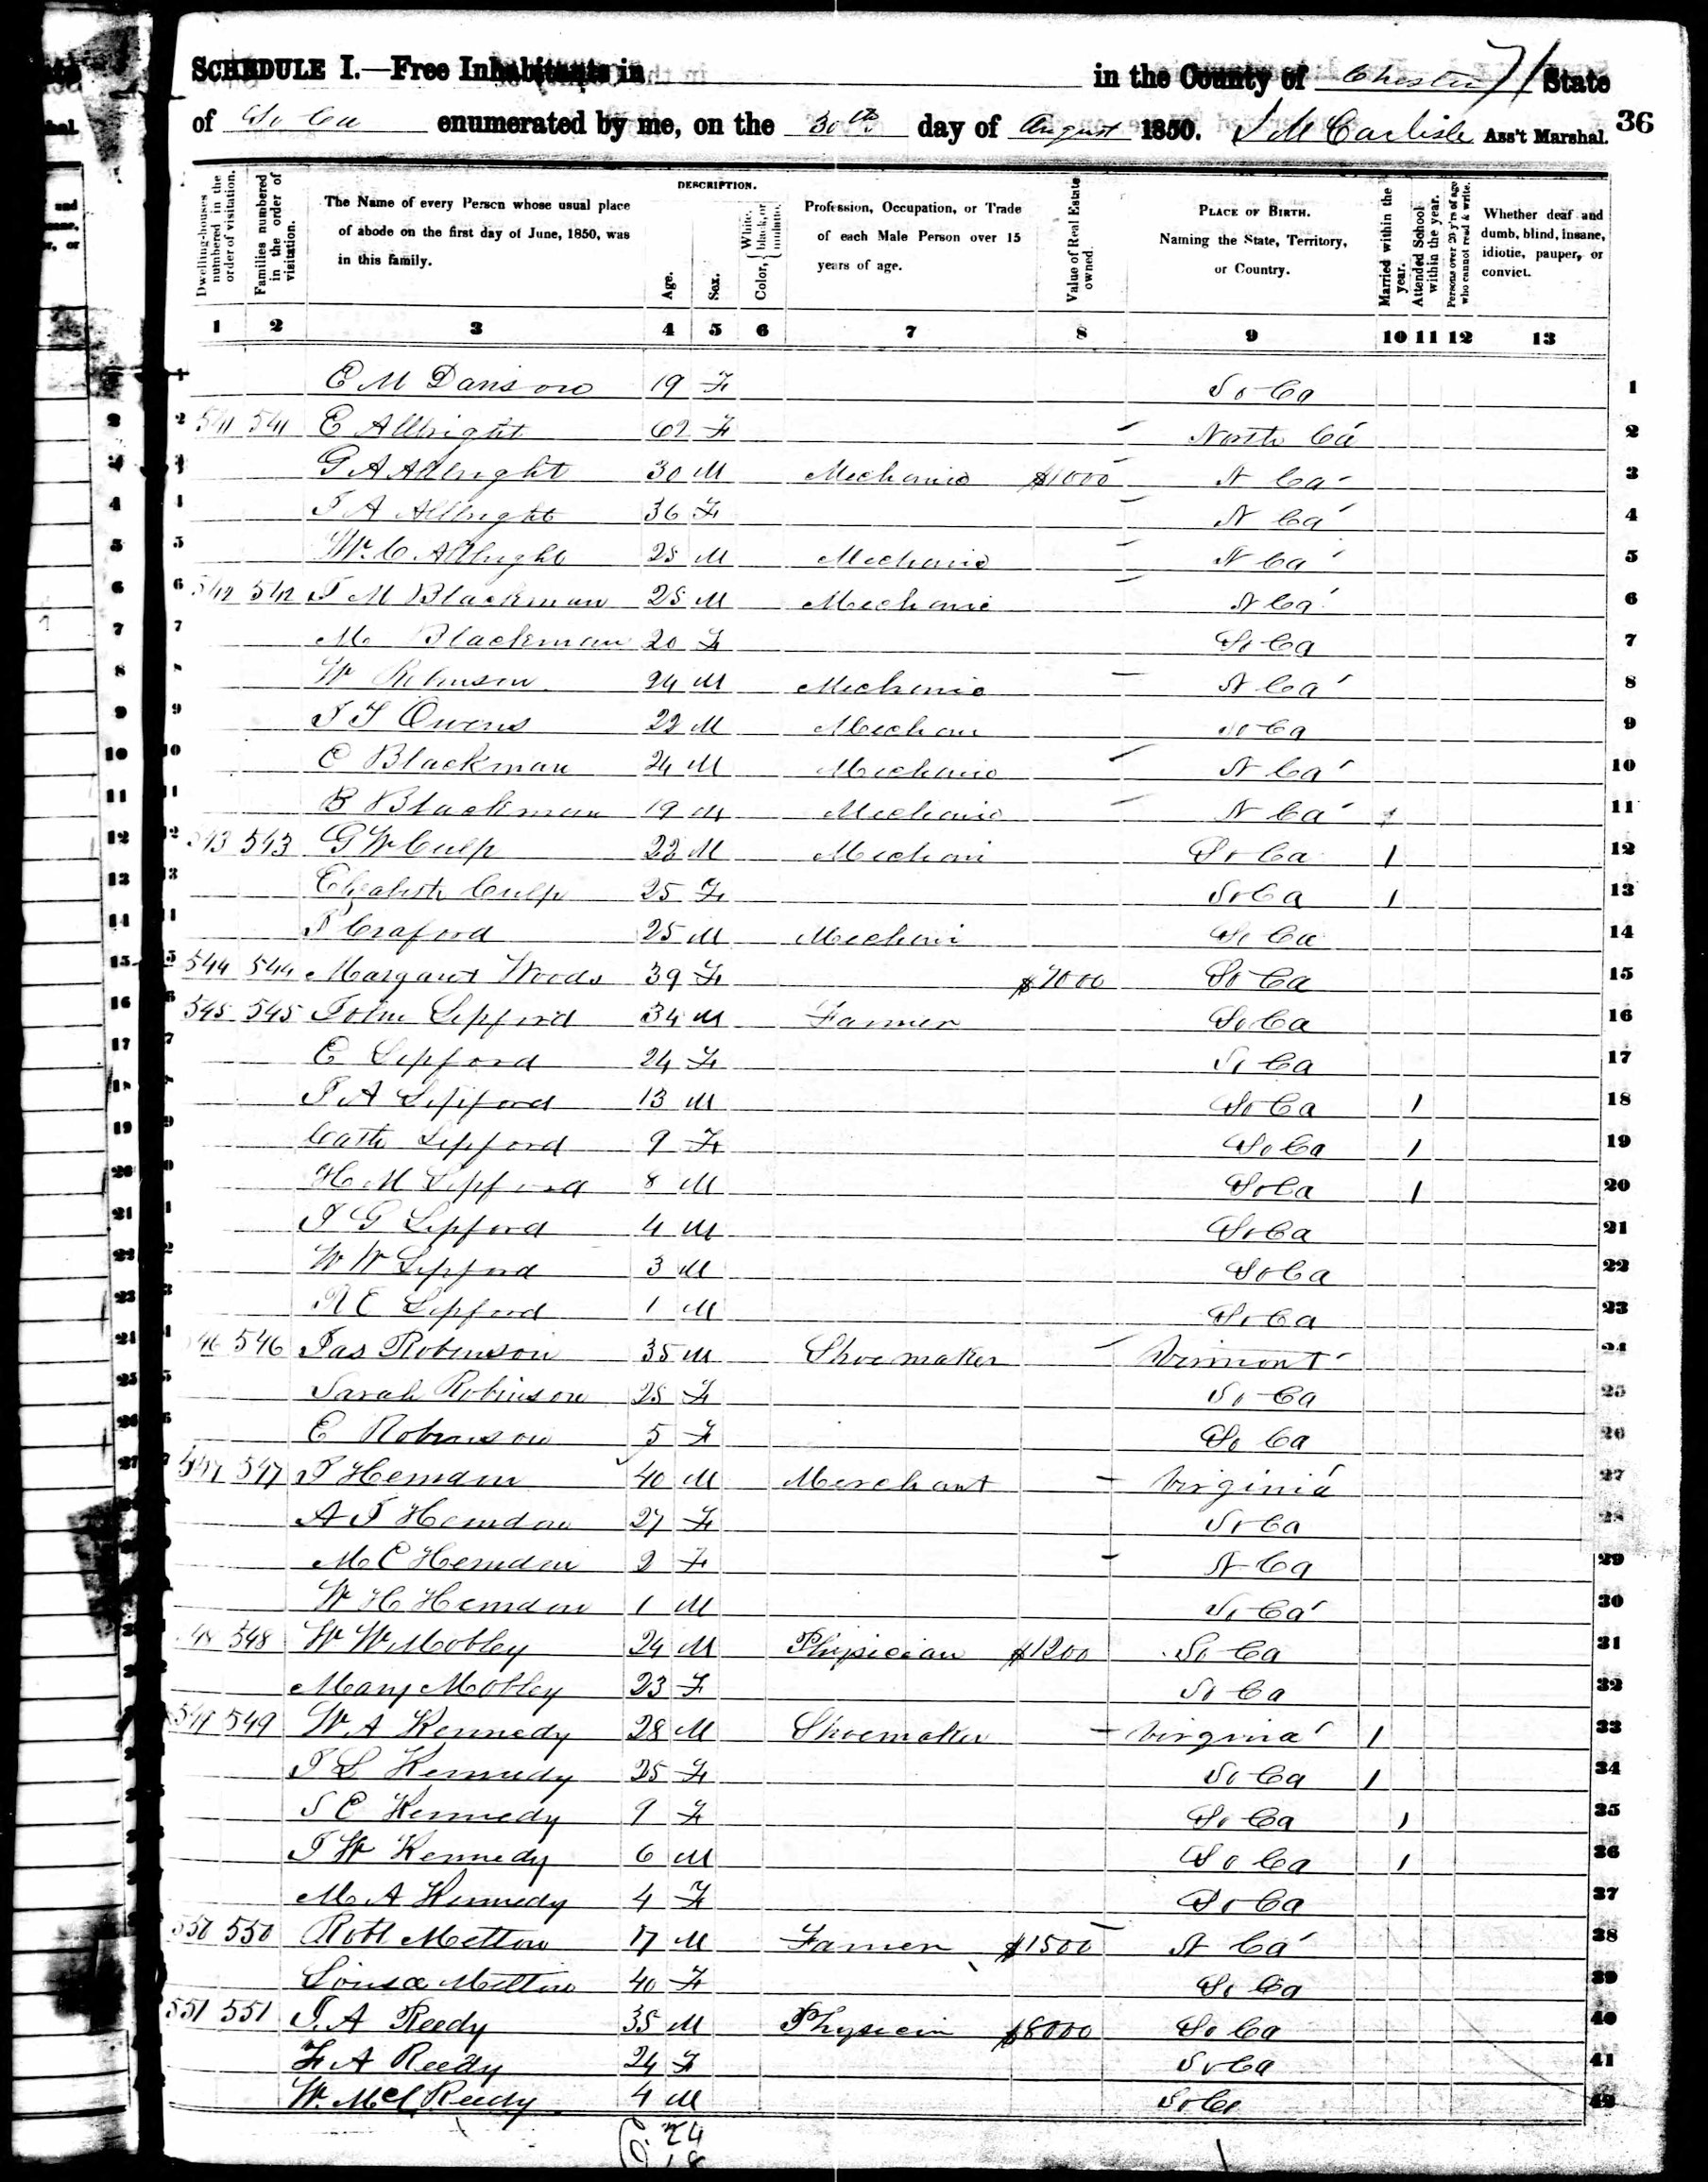 SCHEDULE I.—Free Inhabitants in in the County of Chester State 71
of So Ca enumerated by me, on the 30th day of August 1850. J M Carlisle Ass't Marshal. 36
Dwelling-houses numbered in the order of visitation.
Families numbered in the order of visitation.
The Name of every Person whose usual place of abode on the first day of June, 1850, was in this family.
DESCRIPTION.
Age.
Sex.
Color, White, black, or mulatto.
Profession, Occupation, or Trade of each Male Person over 15 years of age.
Value of Real Estate owned.
PLACE OF BIRTH. Naming the State, Territory, or Country.
Married within the year.
Attended School within the year.
Persons over 20 y'rs of age who cannot read & write.
Whether deaf and dumb, blind, insane, idiotic, pauper, or convict.
1 2 3 4 5 6 7 8 9 10 11 12 13
1 E M 19 F So Ca 1
2 541 541 E Allbright 62 F North Ca 2
3 G A Allbright 30 M Mechanic $1000 N Ca 3
4 J A Allbright 36 F N Ca 4
5 Wm C Allbright 28 M Mechanic N Ca 5
6 542 542 J M Blackman 28 M Mechanic N Ca 6
7 M Blackman 20 F So Ca 7
8 W Robinson 24 M Mechanic N Ca 8
9 J T Owens 22 M Mechan So Ca 9
10 C Blackman 24 M Mechanic N Ca 10
11 B Blackman 19 M Mechanic N Ca 1 11
12 543 543 G W Culp 22 M Mechani So Ca 1 12
13 Elizabeth Culp 25 F So Ca 1 13
14 J Craford 25 M Mechani So Ca 14
15 544 544 Margaret Woods 39 F $7000 So Ca 15
16 545 545 John Lipford 34 M Farmer So Ca 16
17 E Lipford 24 F So Ca 17
18 J A Lipford 13 M So Ca 1 18
19 Cath Lipford 9 F So Ca 1 19
20 H M Lipford 8 M So Ca 1 20
21 J G Lipford 4 M So Ca 21
22 W W Lipford 3 M So Ca 22
23 R E Lipford 1 M So Ca 23
24 546 546 Jas Robinson 35 M Shoemaker Virmont 24
25 Sarah Robinson 28 F So Ca 25
26 E Robinson 5 F So Ca 26
27 547 547 J Herndon 40 M Merchant Virginia 27
A J Herndon 27 F So Ca 28
M E Herndon 2 F N Ca 29
W H Herndon 1 M So Ca 30
548 548 W W Mobley 24 M Physician $1200 So Ca 31
Mary Mobley 23 F So Ca 32
549 549 W A Kennedy 28 M Shoemaker Virginia 1 33
J L Kennedy 25 F So Ca 1 34
S E Kennedy 9 F So Ca 1 35
J W Kennedy 6 M So Ca 1 36
M A Kennedy 4 F So Ca 37
550 550 Robt Melton 17 M Farmer $1500 N Ca 38
Louisa Melton 40 F So Ca 39
551 551 J. A Reedy 35 M Physicin $8000 So Ca 40
F A Reedy 24 F So Ca 41
W. McC Reedy 4 M So Ca 42
24
18